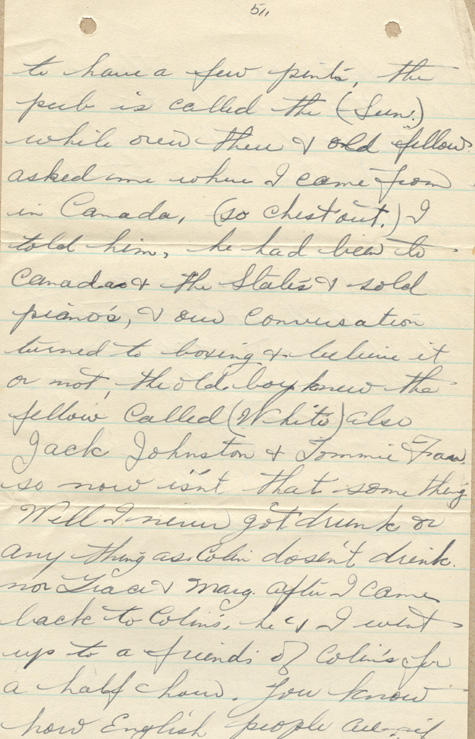 5,,
to have a few pints, the
pub is called the (Sun.)
while over there & old fellow
asked me where I came from
in Canada, (so chest out.) I
told him, he had been to
Canada & the States & sold
piano's, & our conversation
turned to boxing & believe it
or not, the old boy knew the
fellow called (White) also
Jack Johnston & Tommie
so now isn't that something
Well I never got drunk or
any thing as Colin doesn't drink.
nor & Marg. after I came
back to Colin's, he & I went
up to a friends of Colin's for
a half hour. You know
how English people